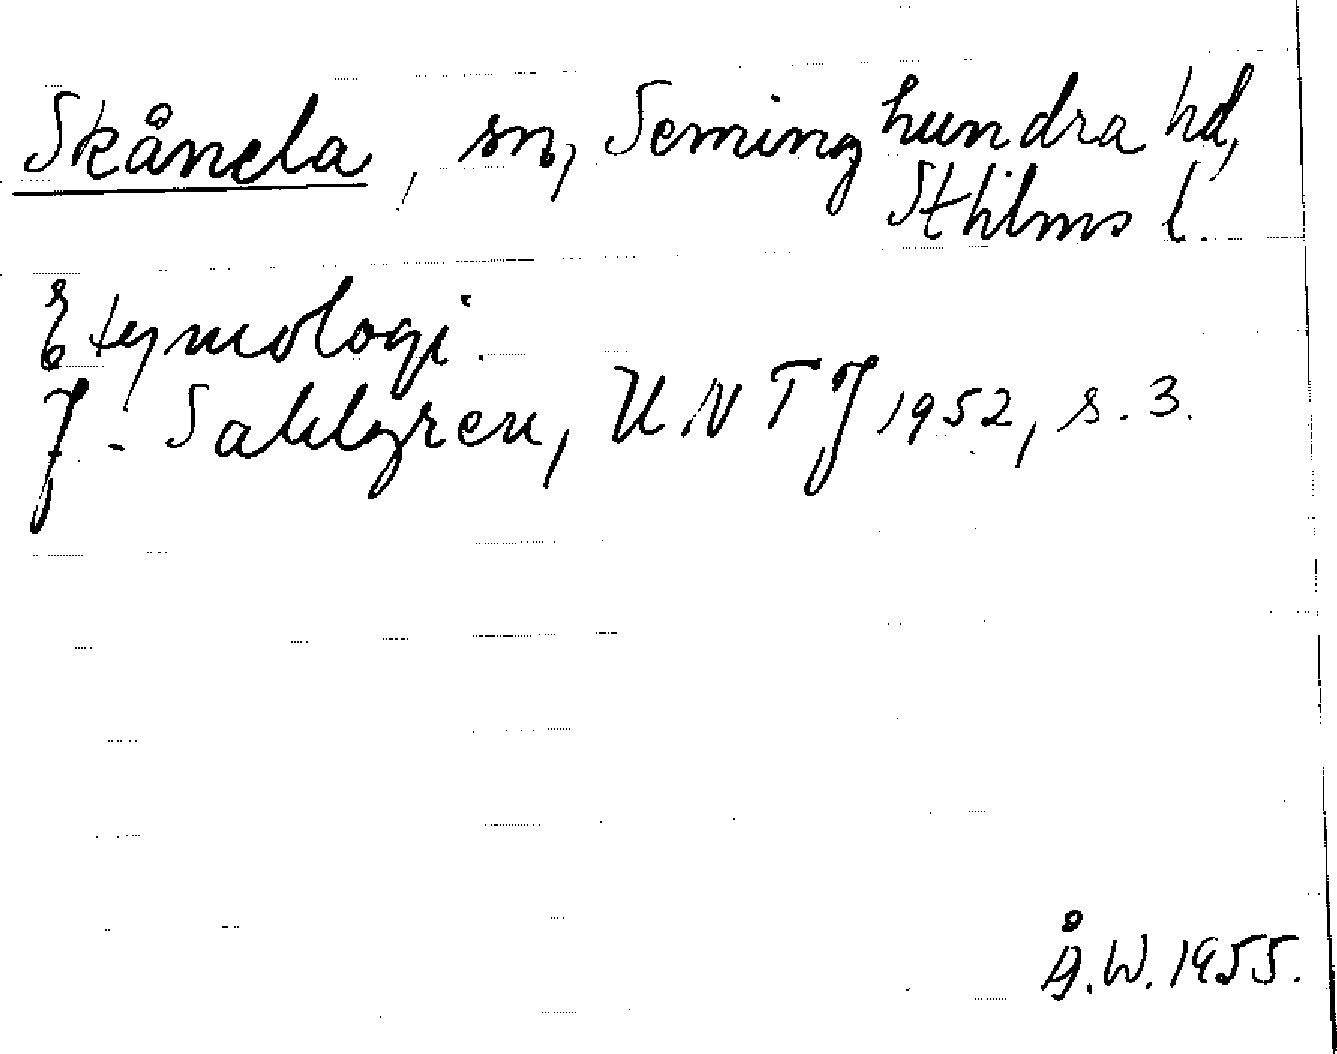 Skånela, sn, Seminghundra hd,
Sthlms l.
Etymologi.
J. Sahlgren, UNTJ 1952, s. 3.
Å.W. 1955.